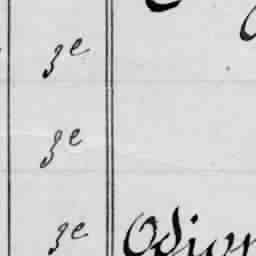 3e
3e
3e